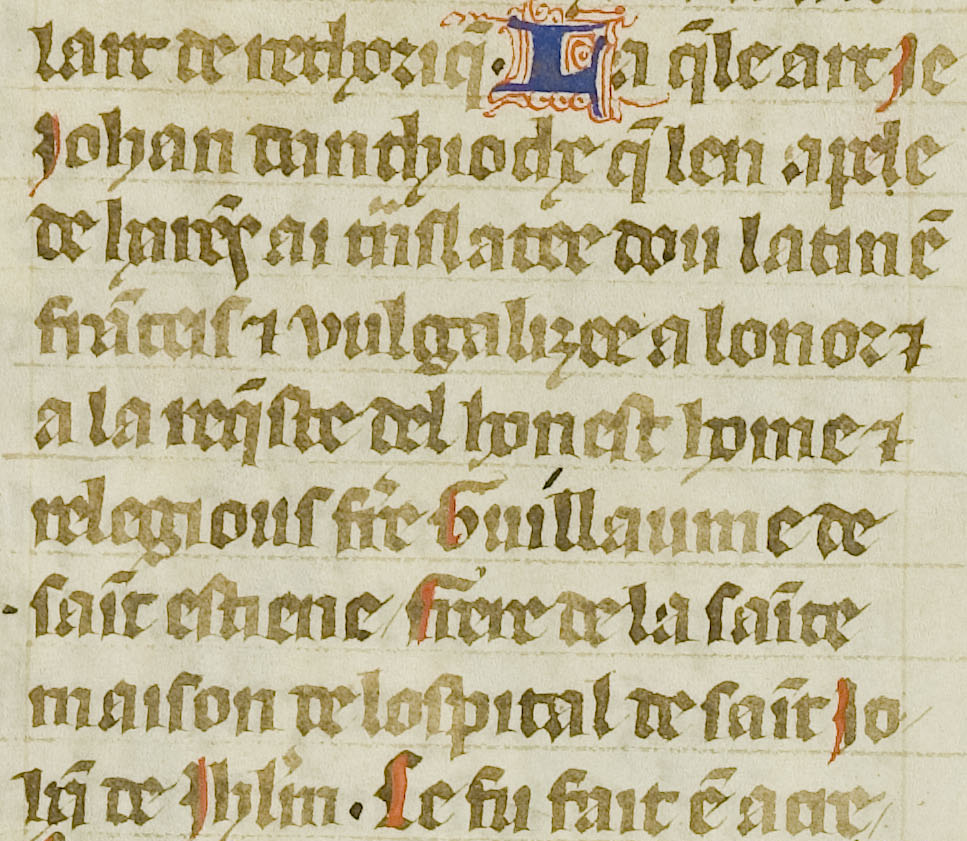 lart de rethoriq̃. La q̃le art Je
Johan danthioche q̃ len apele
de hareñs ai trãslatee dou latin ẽ
frãceis ⁊ vulgalizee a lonor ⁊
a la req̃ste del honest home ⁊
relegious frẽ Guillaume de
saĩt estiene / frere de la saĩte
maison de lospital de saĩt Jo
hã de Jhr̃lm . Ce fu fait ẽ acre /